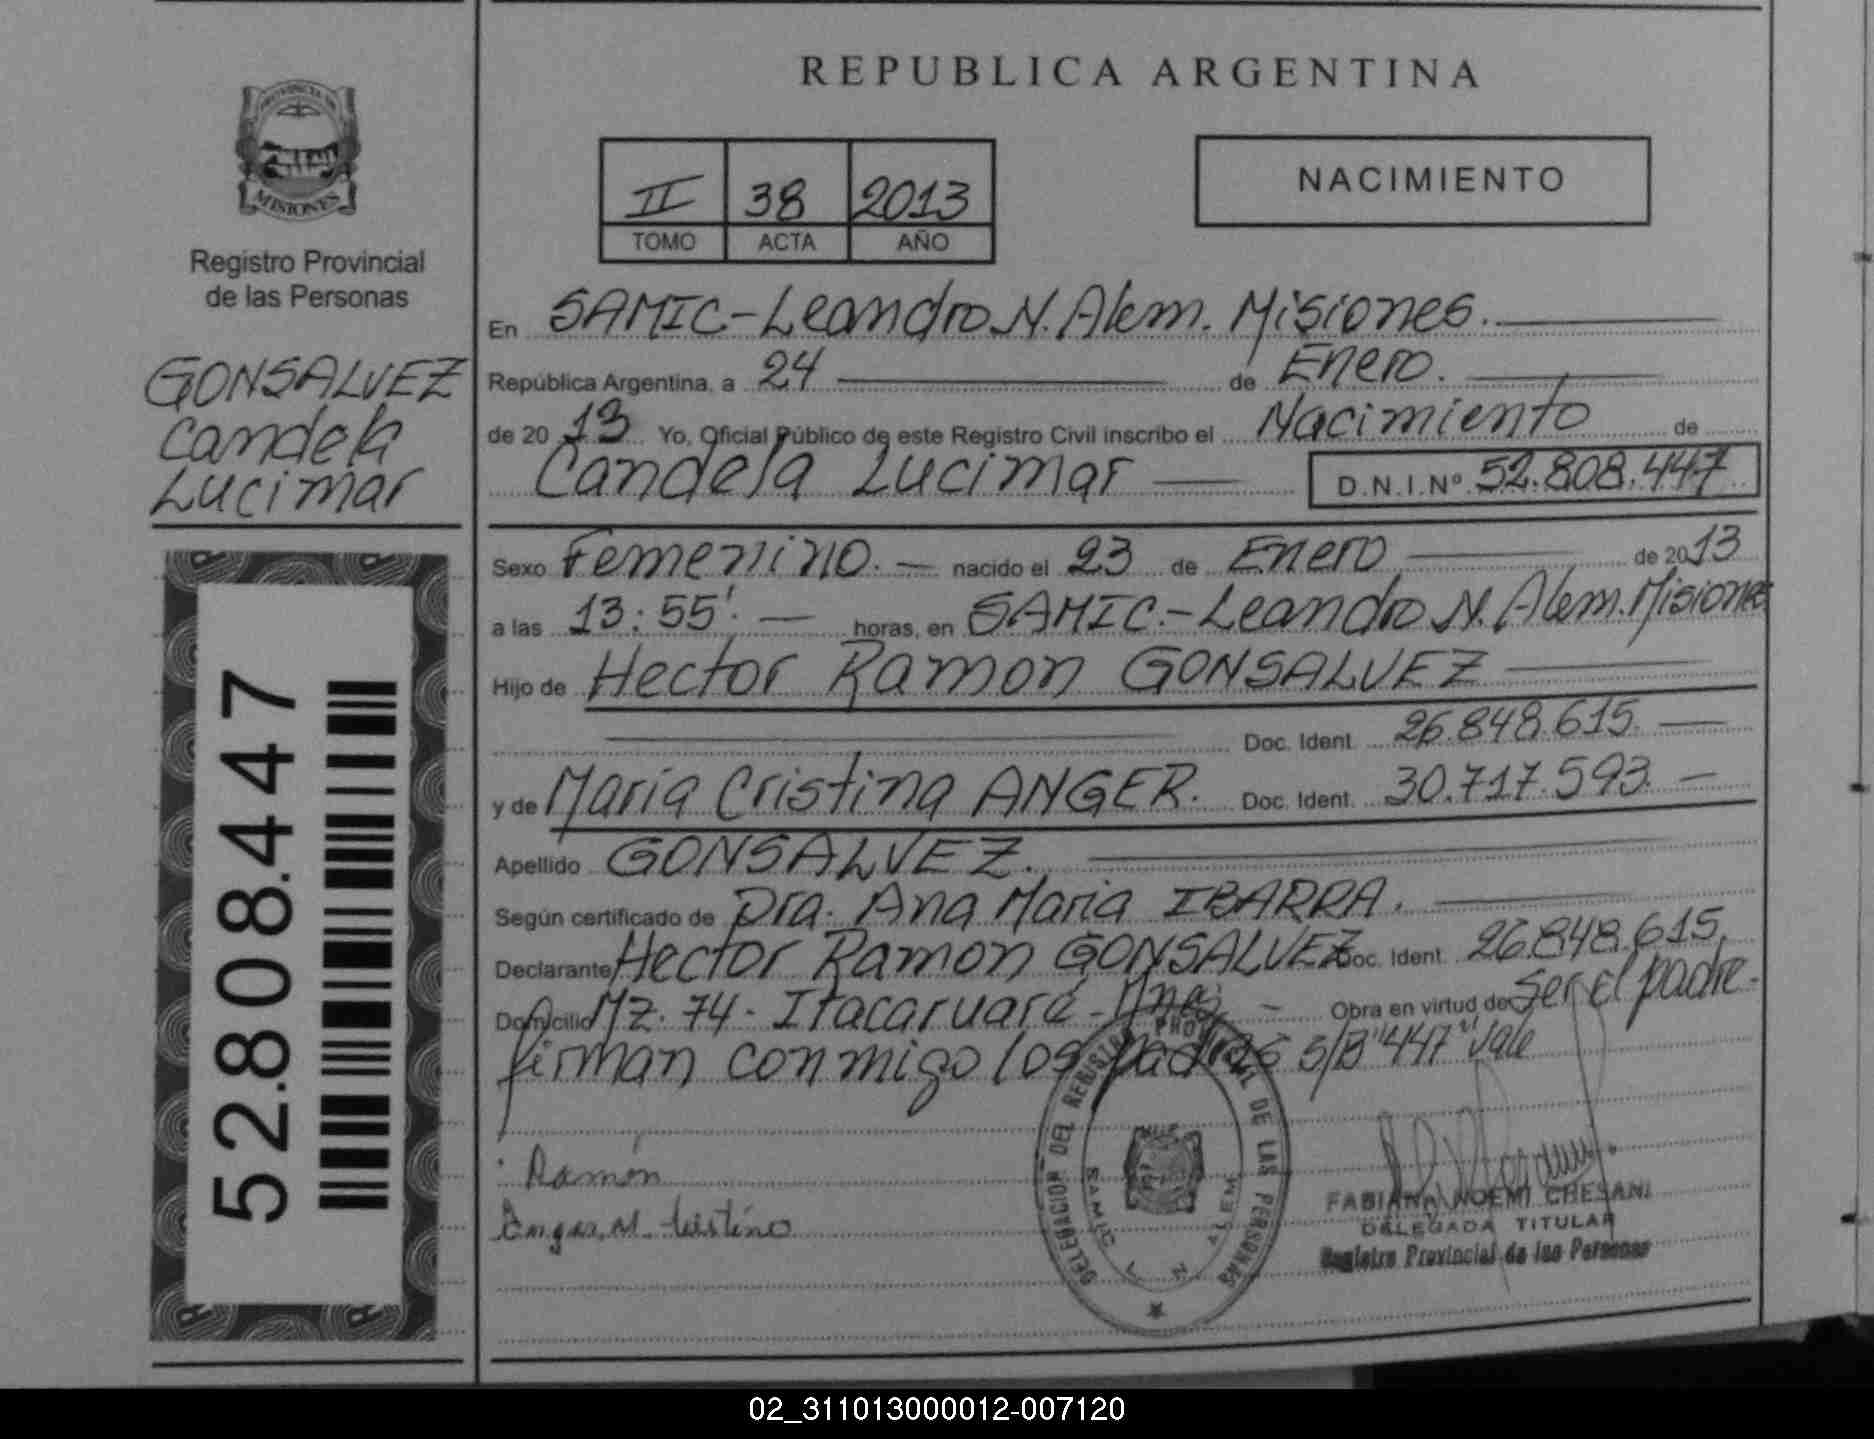 REPUBLICA ARGENTINA
PROVINCIA DE
MISIONES
Registro Provincial
de las Personas
GONSALVEZ
Candela
Lucimar
52.808.447
II 38 2013
TOMO ACTA AÑO
NACIMIENTO
En SAMIC-Leandro N. Alem. Misiones.
República Argentina, a 24 de Enero.
de 20 13 Yo, Oficial Público de este Registro Civil inscribo el Nacimiento de
Candela Lucimar D.N.I.Nº 52.808.447
Sexo Femenino. nacido el 23 de Enero de 2013
a las 13:55'. horas, en SAMIC.-Leandro N. Alem. Misiones
Hijo de Hector Ramon GONSALVEZ
Doc. Ident. 26.848.615.
y de Maria Cristina ANGER. Doc. Ident. 30.717.593.
Apellido GONSALVEZ.
Según certificado de Dra. Ana Maria IBARRA.
Declarante Hector Ramon GONSALVEZ Doc. Ident. 26.848.615.
Domicilio Mz. 74- Itacaruaré-Mnes. Obra en virtud de Ser el padre.
firman conmigo los padres S/B "447" vale
Ramón
DELEGACION DEL REGISTRO PROVINCIAL DE LAS PERSONAS
SAMIC L. N. ALEM
FABIANA NOEMI CHESANI
DELEGADA TITULAR
Registro Provincial de las Personas
02_311013000012-007120